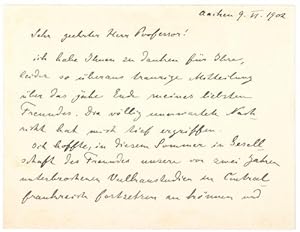 Aachen 9. VI. 1902
Sehr geehrter Herr Professor!
ich habe Ihnen zu danken für Ihre,
leider so überaus traurige Mittheilung
über das jähe Ende meines liebsten
Freundes. Die völlig unerwartete Nach-
richt hat mich tief ergriffen.
Ich hoffte, in diesem Sommer in Gesell-
schaft des Freundes unsere vor zwei Jahren
unterbrochenen Vulkanstudien in Central-
frankreich fortsetzen zu können und